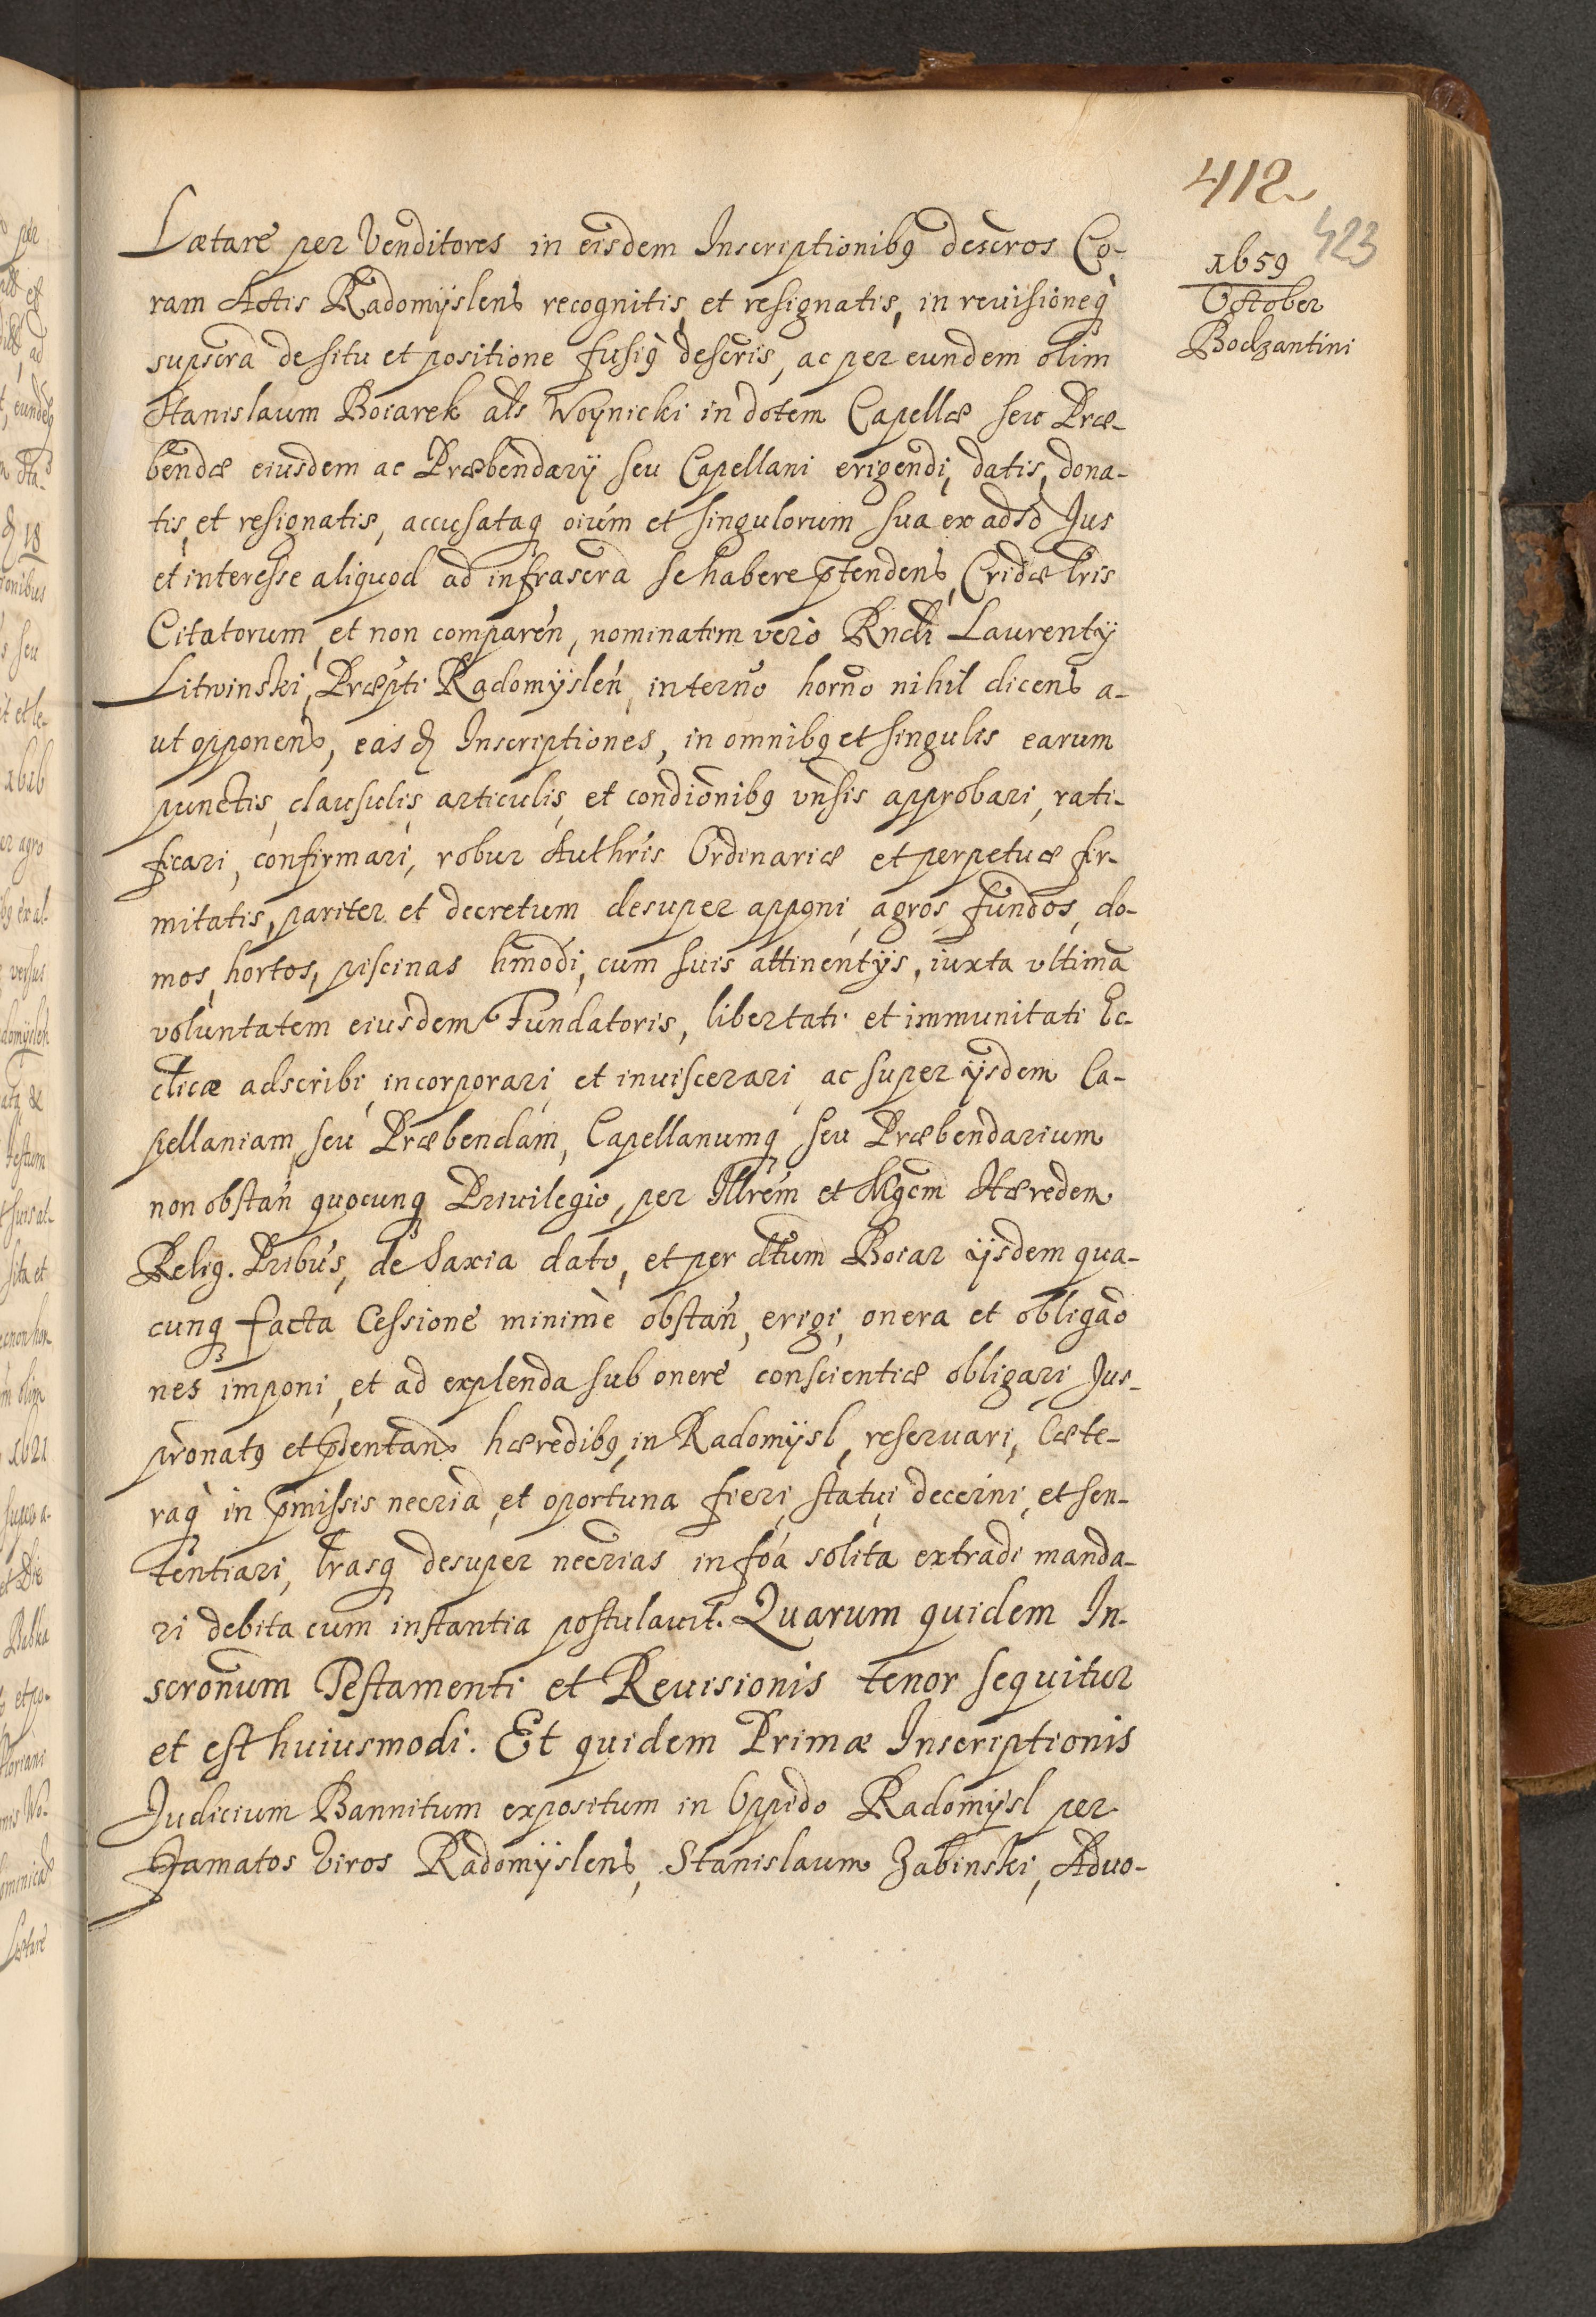 412
423
1659
October
Bodzantini
Lætare per Venditores in eisdem Inscriptionibꝯ descros Co-
ram Actis Radomÿslens recognitis, et resignatis, in revisioneq̀
supscra de situ et positione fusiꝯ descris, ac per eundem olim
Stanislaum Boiarek als Woynicki in dotem Capellæ seu Præ-
bendæ eiusdem ac Præbendarÿ seu Capellani erigendi, datis, dona-
tis, et resignatis, accusataq oium et singulorum sua ex adso Jus
et interesse aliquod ad infrascra se habere p̄tendens, Cridæ lris
Citatorum, et non comparen, nominatim vero Rndi Laurentÿ
Litwinski, Præpti Radomÿslen, interno horno nihil dicens a-
ut opponens, easdꝫ Inscriptiones, in omnibꝯ et singulis earum
punctis, clausulis, articulis, et condionibꝯ vnsis approbari, rati-
ficari, confirmari, robur Authris Ordinariæ et perpetuæ fir-
mitatis, pariter et decretum desuper apponi, agros, fundos, do-
mos, hortos, piscinas hmodi, cum suis attinentÿs, iuxta vltima
voluntatem eiusdem Fundatoris, libertati et immunitati Ec-
clicæ adscribi, incorporari, et inuiscerari, ac super ÿsdem Ca-
pellaniam seu Præbendam, Capellanumq seu Præbendarium
non obstan quocunq Priuilegio, per Illrem et Mgcm Hæredem
Relig. Pribus, de Saxia dato, et per dtum Boiar ÿsdem qua-
cunq facta Cessione minimè obstan, erigi, onera et obligao
nes imponi, et ad explenda sub onere conscientiæ obligari, Jus-
pronatꝯ et p̄dentan hæredibꝯ in Radomÿsl, reseruari, Cæte-
raq̀ in p̄missis necria, et oportuna fieri, statui, decerni, et sen-
tentiari, lrasq desuper necrias in foa solita extradi manda-
ri debita cum instantia postulauit. Quarum quidem In-
scronum Testamenti et Reuisionis tenor sequitur
et est huiusmodi. Et quidem Primæ Inscriptionis
Judicium Bannitum expositum in Oppido Radomÿsl per
Famatos Viros Radomÿslens, Stanislaum Zabinski, Aduo-